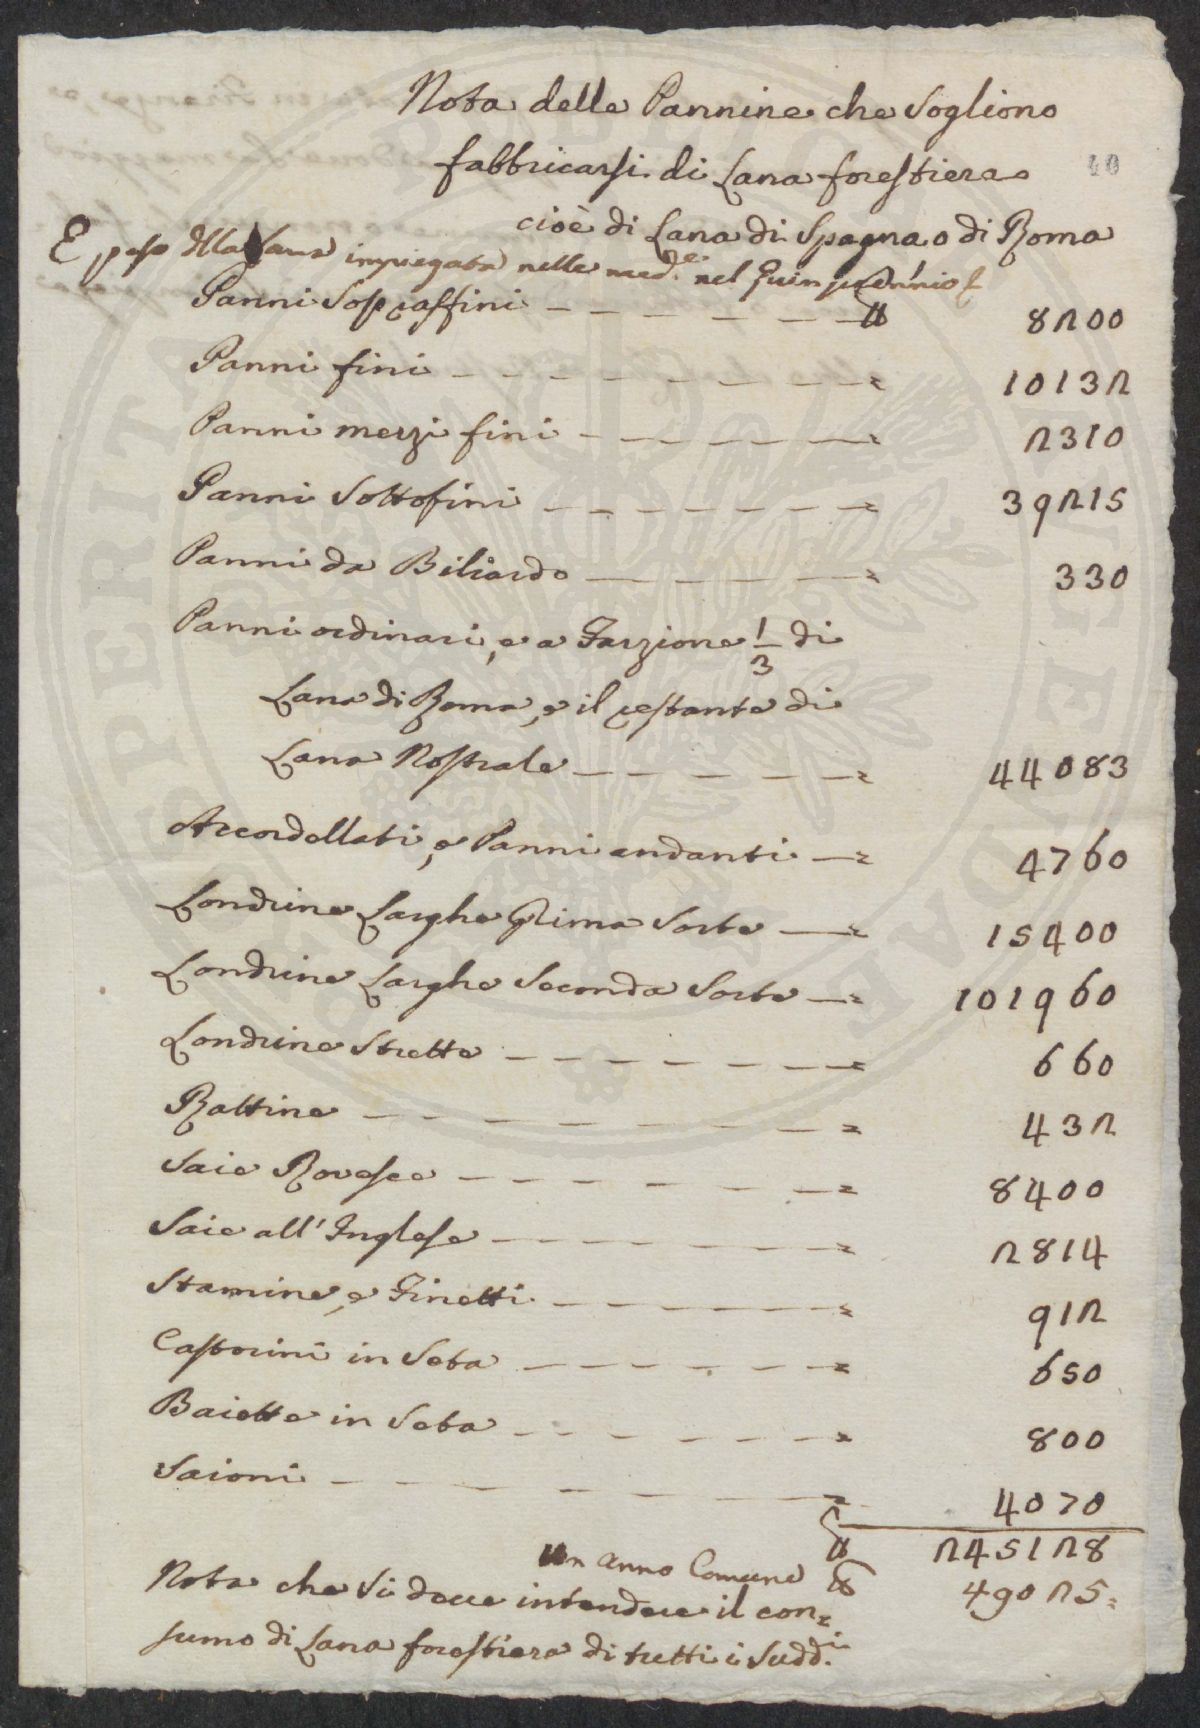 Nota delle Pannine che Sogliono
fabbricarsi di Lana forestiera
40
cioè di Lana di Spagna, o di Roma
E peso della Lana impiegata nelle med.e nel Quinquennio
Panni Sopraffini 8200
Panni fini 10132
Panni mezzi fini 2310
Panni Sottofini 39215
Panni da Biliardo 330
Panni ordinari, e a Farzione 1/3 di
Lana di Roma, e il restante di
Lana Nostrale 44083
Accordellati, e Panni andanti 4760
Londrine Larghe Prima Sorte 15400
Londrine Larghe Seconda Sorte 101960
Londrine Strette 660
Rattine 432
Saie Rovesce 8400
Saie all'Inglese 2814
Stamine, e Finetti 912
Castorini in Seta 650
Baiette in Seta 800
Saioni 4070
245128
un anno Comune 49025
Nota che si deve intendere il con=
sumo di Lana forestiera di tutti i Sudd.i